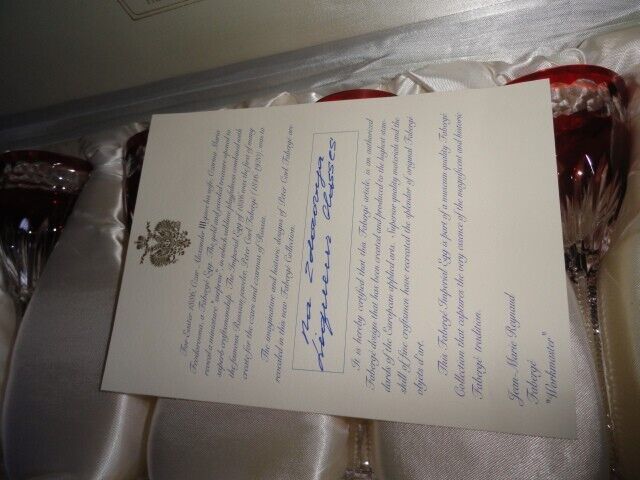 For Easter 1886, Czar Alexander III gave his wife, Czarina Maria
Feodorovna, a Fabergé Egg. The gold and jeweled ornament opened to
reveal a miniature "surprise" in which was
superb craftsmanship. The Imperial Egg of 1886 was the first of many
the famous Russian jeweler, Peter Carl Fabergé (1846-1920), was to
create for the czars and czarinas of Russia.
The imaginative and historic designs of Peter Carl Fabergé are
revealed in this new Fabergé Collection.
Na Zdorovya
Liqueurs Glasses
It is hereby certified that this Fabergé article, is an authorized
Fabergé design that has been created and produced to the highest stan-
dards of the European applied arts. Superior quality materials and the
skill of fine craftsmen have recreated the splendor of original Fabergé
objets d'art.
This Fabergé Imperial Egg is part of a museum quality Fabergé
Collection that captures the very essence of the magnificent and historic
Fabergé tradition.
Jean-Marie Reynaud
Fabergé
"Workmaster"